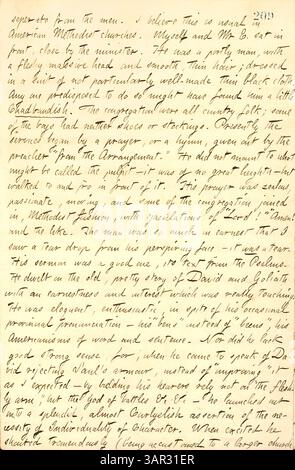 209
seperate from the men. I believe this is usual in
American Methodist churches. Myself and Mr E. sat in
front, close by the minister. He was a portly man, with
a fleshy massive head and smooth, thin hair; dressed
in a suit of not particularly well-made thin black cloth.
Any one predisposed to do so might have found him a little
Chadbandish. The congregation were all country folk; some
of the boys had neither shoes or stockings. Presently the
service began by a prayer, or a hymn, given out by the
preacher from the "Arrangement." He did not mount to what
might be called the pulpit — it was of no great height — but
walked to and fro in front of it. His prayer was zealous,
passionate, moving, and some of the congregation joined
in, Methodist fashion, with ejaculations of "Lord!" "Amen!"
and the like. The man was so much in earnest that I
saw a tear drop from his perspiring face — it was a tear.
His sermon was a good one, its text from the Psalms.
He dwelt on the old, pretty story of David and Goliath
with an earnestness and interest which was really touching.
He was eloquent, enthusiastic, in spite of his occasional
provincial pronunciation — his "bens" instead of "beens," his
Americanisms of word and sentence. Nor did he lack
good strong sense for, when he came to speak of Da-
vid rejecting Saul's armour, instead of "improving" it
as I expected — by bidding his hearers rely not on the fleshly
arm, but the God of Battles &c. &c. — he launched out
into a splendid, almost Carlylish assertion of the ne-
cessity of Individuality of Character. When excited he
shouted tremendously (being accustomed to a larger church
alamy
Image ID: 3AR31ER
www.alamy.com